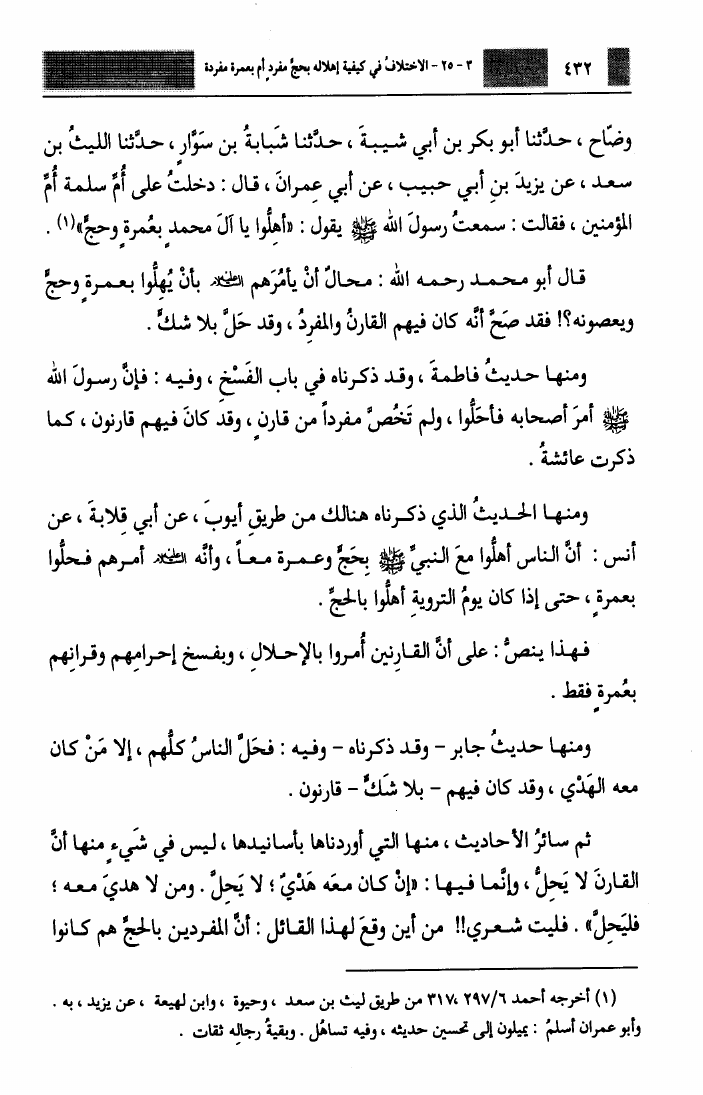 ٤٣٢
٣ - ٢٥ - الاختلافُ في كيفية إهلاله بحجٍّ مفردٍ أم بعمرة مفردة
وضّاح ، حدَّثنا أبو بكر بن أبي شيبةَ ، حدَّثنا شَبابةُ بن سَوَّارٍ ، حدَّثنا الليثُ بن
سعد ، عن يزيدَ بنِ أبي حبيب ، عن أبي عِمرانَ ، قال : دخلتُ على أُمِّ سلمة أُمِّ
المؤمنين ، فقالت : سمعتُ رسولَ الله ﷺ يقول : «أهِلُّوا يا آلَ محمدٍ بعُمرةٍ وحجٍّ»(١) .
قال أبو محمد رحمه الله : محالٌ أنْ يأمُرَهم عليه السلام بأنْ يُهِلُّوا بعمرةٍ وحجٍّ
ويعصونه؟! فقد صَحَّ أنَّه كان فيهم القارنُ والمفرِدُ ، وقد حَلَّ بلا شكٍّ .
ومنها حديثُ فاطمةَ ، وقد ذكرناه في باب الفَسْخِ ، وفيه : فإنَّ رسولَ الله
ﷺ أمرَ أصحابه فأحَلُّوا ، ولم تَخُصَّ مفرداً من قارنٍ ، وقد كانَ فيهم قارنون ، كما
ذكرت عائشةُ .
ومنها الحديثُ الذي ذكرناه هنالك من طريقِ أيوبَ ، عن أبي قِلابةَ ، عن
أنس : أنَّ الناس أهلُّوا معَ النبيِّ ﷺ بِحَجٍّ وعمرة معاً ، وأنَّه عليه السلام أمرهم فحلُّوا
بعمرةٍ ، حتى إذا كان يومُ الترويةِ أهلُّوا بالحجِّ .
فهذا ينصُّ : على أنَّ القارِنين أُمروا بالإحلالِ ، وبفسخ إحرامِهم وقرانِهم
بعُمرةٍ فقط .
ومنها حديثُ جابر - وقد ذكرناه - وفيه : فحَلَّ الناسُ كلُّهم ، إلا مَنْ كان
معه الهَدْي ، وقد كان فيهم - بلا شَكٍّ - قارنون .
ثم سائرُ الأحاديث ، منها التي أوردناها بأسانيدها ، ليس في شَيءٍ منها أنَّ
القارنَ لا يَحِلُّ ، وإنَّما فيها : «إنْ كان معَه هَدْيٌ ؛ لا يَحِلَّ . ومن لا هديَ معه ؛
فليَحِلَّ» . فليت شعري!! من أين وقعَ لهذا القائل : أنَّ المفردين بالحجِّ هم كانوا
(١) أخرجه أحمد ٢٩٧/٦ ،٣١٧ من طريق ليث بن سعد ، وحيوة ، وابن لهيعة ، عن يزيد ، به .
وأبو عمران أسلمُ : يميلون إلى تحسين حديثه ، وفيه تساهُل . وبقيةُ رجالِه ثقات .